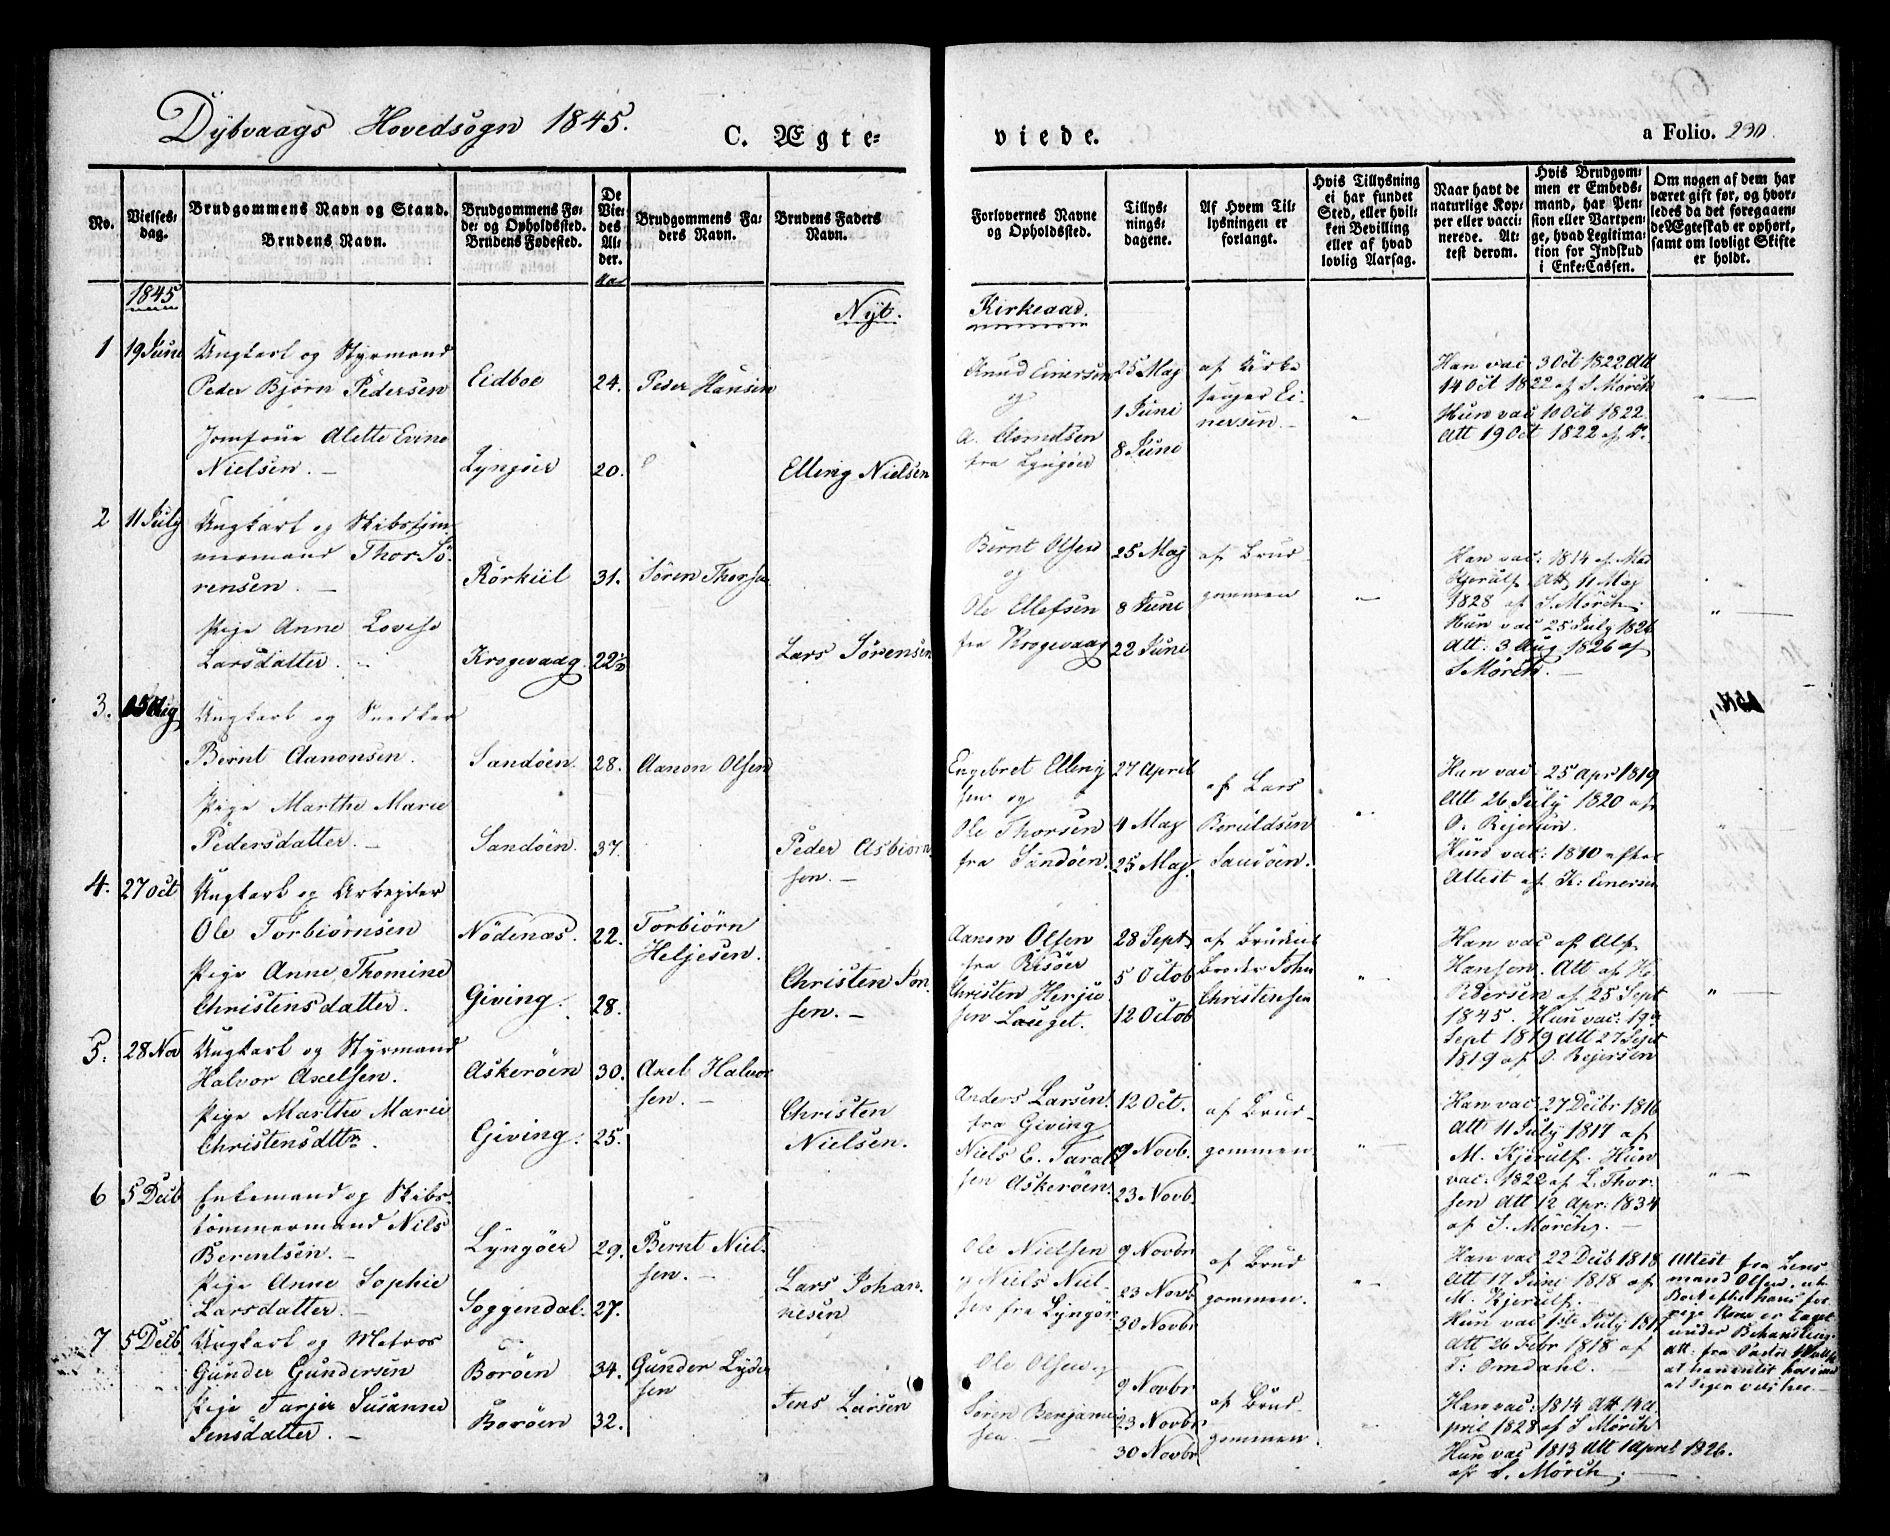 Dybvaags Hovedsogn 1845.
C. Ægte-
viede.
a Folio. 230.
No.
Vielses-
dag.
Brudgommens Navn og Stand.
Brudens Navn.
Brudgommens Fø-
de- og Opholdssted.
Brudens Fødested.
De
Vie-
des
Al-
der.
Aar
Brudgommens Fa-
ders Navn.
Brudens Faders
Navn.
Forlovernes Navne
og Opholdssted.
Tillys-
nings-
dagene.
Af Hvem Til-
lysningen er
forlangt.
Hvis Tillysning
ei har fundet
Sted, eller hvil-
ken Bevilling
eller af hvad
lovlig Aarsag.
Naar havt de
naturlige Kop-
per eller vacci-
nerede. At-
test derom.
Hvis Brudgom-
men er Embeds-
mand, har Pen-
sion eller Vartpen-
ge, hvad Legitima-
tion for Indskud
i Enke-Cassen.
Om nogen af dem har
været gift før, og hvor-
ledes da det foregaaen-
de Ægteskab er ophørt,
samt om lovligt Skifte
er holdt.
1845
Nyt.
Kirkeaad.
1
19 Juni
Ungkarl og Styrmand
Peder Bjørn Pedersen
Jomfrue Alette Evine
Nielsen. —
Eidboe
Lyngöer
24.
20.
Peder Hansen
Elling Nielsen
Knud Einersen
og
A. Aamdsen
fra Lyngöer
25 Maj
1 Juni
8 Juni
af Kirke
sanger Ei-
nersen. —
Han vac 3 Oct 1822 Att
14 Oct 1822 af S Mörch
Hun vac 10 Oct 1822
Att 19 Oct 1822 af Do
2
11 July
Ungkarl og Skibstöm-
mermand Thor Sö-
rensen. —
Pige Anne Lovise
Larsdatter. —
Rörkiil
Krogevaag.
31.
22½
Sören Thorsen
Lars Sörensen
Bernt Olsen
og
Ole Ellefsen
fra Krogevaag
25 Maj
8 Juni
22 Juni
af Brud-
gommen
Han vac: 1814 af Mad
Kjerulf Att 11 Maj
1828 af S. Mörch:
Hun vac 25 July 1826
Att: 3 Aug 1826 af
S Mörch. —
3.
15 Aug
Ungkarl og Snedker
Bernt Aanonsen.
Pige Marthe Marie
Pedersdatter. —
Sandöen.
Sandöen.
28.
37.
Aanon Olsen
Peder Asbiörn-
sen. —
Engebret Elling-
sen og
Ole Thorsen
fra Sandöen.
27 April
4 Maj
25 Maj.
af Lars
Beruldsen
Sandöen.
Han vac 25 Apr 1819
Att 26 July 1820 af
O. Rejersen.
Hun vac: 1810 efter
Attest af K: Einersen
4.
27 Oct
Ungkarl og Arbejder
Ole Torbiörnsen
Pige Anne Thomine
Christensdatter.
Nödenæs.
Giving.
22.
28.
Torbiörn
Heljesen.
Christen Jon-
sen. —
Aanon Olsen
fra Risöer
Christen Herju-
sen Lauget.
28 Sept
5 Octob
12 Octob
af Brudens
Broder John
Christensen
Han vac af Alf
Hansen. Att af H.
Pedersen af 25 Sept
1845. Hun vac: 19
Sept 1819 Att 27 Sept
1819 af O. Rejersen
5.
28 Nov
Ungkarl og Styrmand
Halvor Axelsen.
Pige Marthe Marie
Christensdttr.
Askeröen
Giving.
30.
25.
Axel Halvor-
sen. —
Christen
Nielsen.
Anders Larsen
fra Giving
Niels E. Taral-
sen Askeröen.
12 Oct.
9 Novb.
23 Novb.
af Brud-
gommen.
Han vac 27 Decbr 1816
Att 11 July 1817 af
M. Kjerulf. Hun
vac: 1822 af L. Thor-
sen Att 12 Apr: 1834
af S. Mörch. —
6
5 Decb
Enkemand og Skibs-
tömmermand Nils
Berentsen. —
Pige Anne Sophie
Larsdatter. —
Lyngöer
Soggendal.
29.
27.
Bernt Niel-
sen. —
Lars Johan-
nesen
Ole Nielsen
og Niels Niel-
sen fra Lyngör
9 Novbr
23 Novb.
30 Novbr
af Brud
gommen.
Han vac 22 Decb 1818
Att 17 Juni 1818 af
M. Kjerulf.
Hun vac 1ste July 1817
Att 26 Febr 1818 af
T: Omdahl.
Attest fra Lens
mand Olsen, at
Boet efter hans for-
rige Kone er taget
under Behandling
Att: fra Pastor
7
5 Decb.
Ungkarl og Matros
Gunder Gundersen
Pige Tarjer Susanne
Jensdatter. —
Boröen
Boröen
34.
32.
Gunder Lyder
sen
Jens Larsen
Ole Olsen og
Sören Benjamin-
sen. —
9 Novbr
23 Novbr.
30 Novbr
af Brud
gommen.
Han vac: 1814 Att 14 A-
pril 1828 af S Mörch
Hun vac 1813 Att 1 April 1826.
af S. Mörch. —